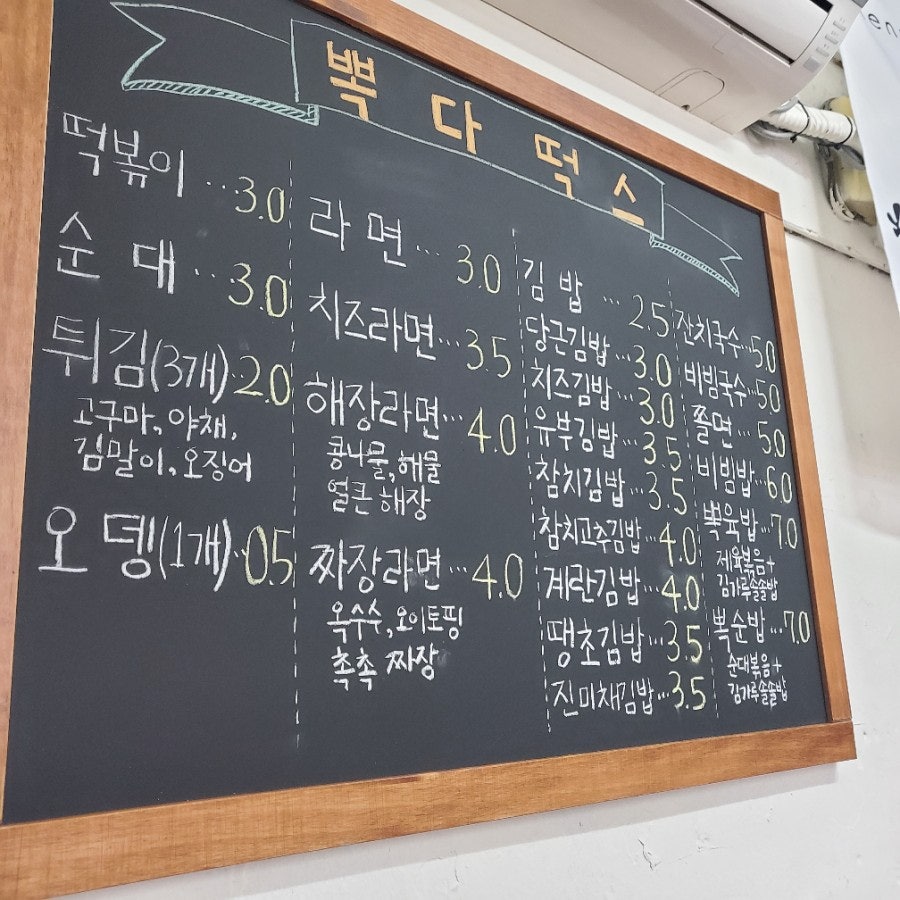 뽁다떡스
떡볶이 ... 3.0
순대 ... 3.0
튀김(3개) .. 2.0
고구마, 야채,
김말이, 오징어
오뎅(1개) ... 0.5
라면 ... 3.0
치즈라면 ... 3.5
해장라면 ... 4.0
콩나물, 해물
얼큰 해장
짜장라면 ... 4.0
옥수수, 오이토핑
촉촉 짜장
김밥 ... 2.5
당근김밥 ... 3.0
치즈김밥 ... 3.0
유부김밥 ... 3.5
참치김밥 ... 3.5
참치고추김밥 ... 4.0
계란김밥 ... 4.0
땡초김밥 ... 3.5
진미채김밥 ... 3.5
잔치국수 ... 5.0
비빔국수 ... 5.0
쫄면 ... 5.0
비빔밥 ... 6.0
뽁육밥 ... 7.0
제육볶음+
김가루솔솔밥
뽁순밥 ... 7.0
순대볶음+
김가루솔솔밥